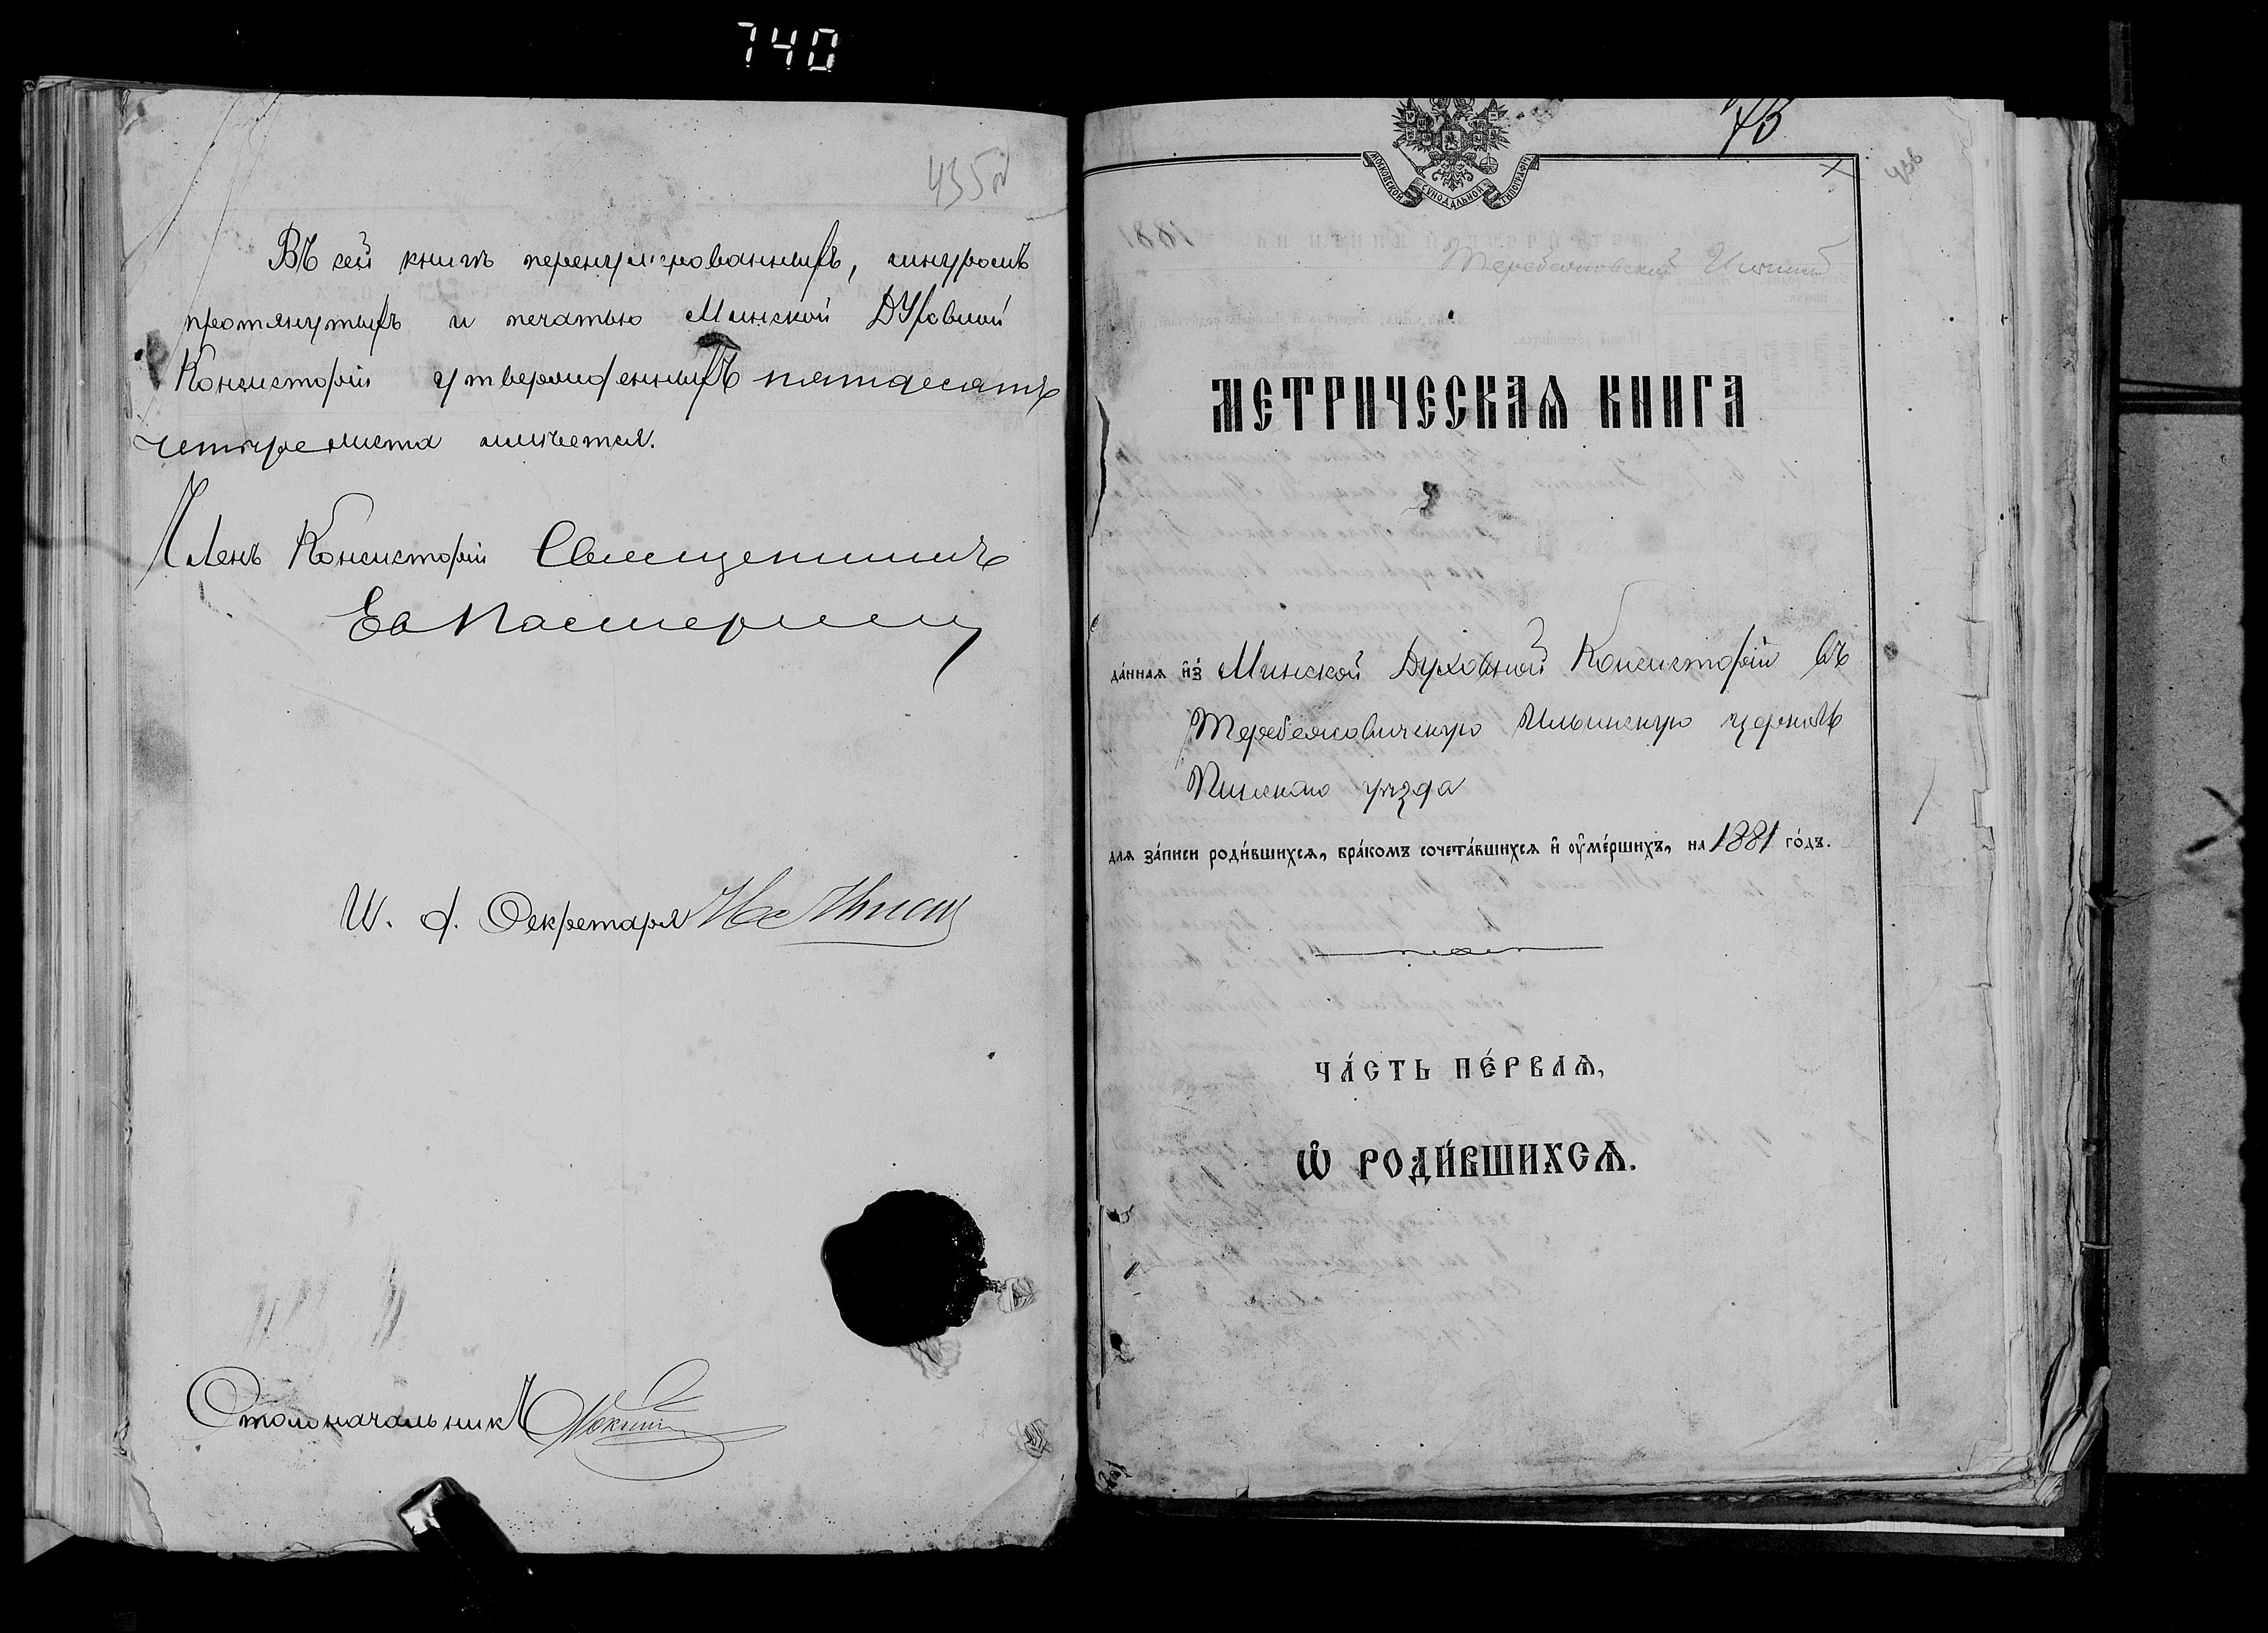 740
435
Въ сей книгѣ перенумерованныхъ, шнуромъ
протянутыхъ и печатью Минской Духовной
Консисторіи утвержденныхъ пятьдесятъ
четыре листа имѣется.
Членъ Консисторіи Священникъ
И. д. Секретаря
Столоначальникъ
436
МОСКОВСКОЙ СѴНОДАЛЬНОЙ ТИПОГРАФІИ
1881
МЕТРИЧЕСКАѦ КНИГА
да́ннаѧ и҆з̾ Минской Духовной Консисторіи въ
Теребежовичскую Ильинскую церковь
Пинскаго уѣзда
длѧ за́писи роди́вшихсѧ, бра́комъ сочета́вшихсѧ и҆ ᲂу҆ме́ршихъ, на 1881 го́дъ.
ЧА́СТЬ ПЕ́РВАѦ,
Ѽ РОДИ́ВШИХСѦ.